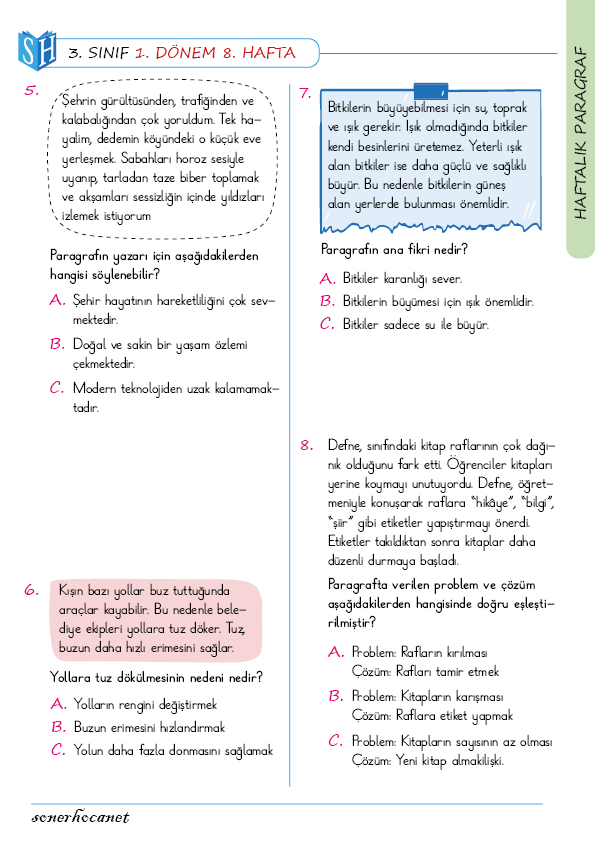 SH
3. SINIF 1. DÖNEM 8. HAFTA
HAFTALIK PARAGRAF
5.
Şehrin gürültüsünden, trafiğinden ve
kalabalığından çok yoruldum. Tek ha-
yalim, dedemin köyündeki o küçük eve
yerleşmek. Sabahları horoz sesiyle
uyanıp, tarladan taze biber toplamak
ve akşamları sessizliğin içinde yıldızları
izlemek istiyorum
Paragrafın yazarı için aşağıdakilerden
hangisi söylenebilir?
A. Şehir hayatının hareketliliğini çok sev-
mektedir.
B. Doğal ve sakin bir yaşam özlemi
çekmektedir.
C. Modern teknolojiden uzak kalamamak-
tadır.
6.
Kışın bazı yollar buz tuttuğunda
araçlar kayabilir. Bu nedenle bele-
diye ekipleri yollara tuz döker. Tuz,
buzun daha hızlı erimesini sağlar.
Yollara tuz dökülmesinin nedeni nedir?
A. Yolların rengini değiştirmek
B. Buzun erimesini hızlandırmak
C. Yolun daha fazla donmasını sağlamak
7.
Bitkilerin büyüyebilmesi için su, toprak
ve ışık gerekir. Işık olmadığında bitkiler
kendi besinlerini üretemez. Yeterli ışık
alan bitkiler ise daha güçlü ve sağlıklı
büyür. Bu nedenle bitkilerin güneş
alan yerlerde bulunması önemlidir.
Paragrafın ana fikri nedir?
A. Bitkiler karanlığı sever.
B. Bitkilerin büyümesi için ışık önemlidir.
C. Bitkiler sadece su ile büyür.
8. Defne, sınıfındaki kitap raflarının çok dağı-
nık olduğunu fark etti. Öğrenciler kitapları
yerine koymayı unutuyordu. Defne, öğret-
meniyle konuşarak raflara “hikâye”, “bilgi”,
“şiir” gibi etiketler yapıştırmayı önerdi.
Etiketler takıldıktan sonra kitaplar daha
düzenli durmaya başladı.
Paragrafta verilen problem ve çözüm
aşağıdakilerden hangisinde doğru eşleşti-
rilmiştir?
A. Problem: Rafların kırılması
Çözüm: Rafları tamir etmek
B. Problem: Kitapların karışması
Çözüm: Raflara etiket yapmak
C. Problem: Kitapların sayısının az olması
Çözüm: Yeni kitap almakilişki.
sonerhocanet